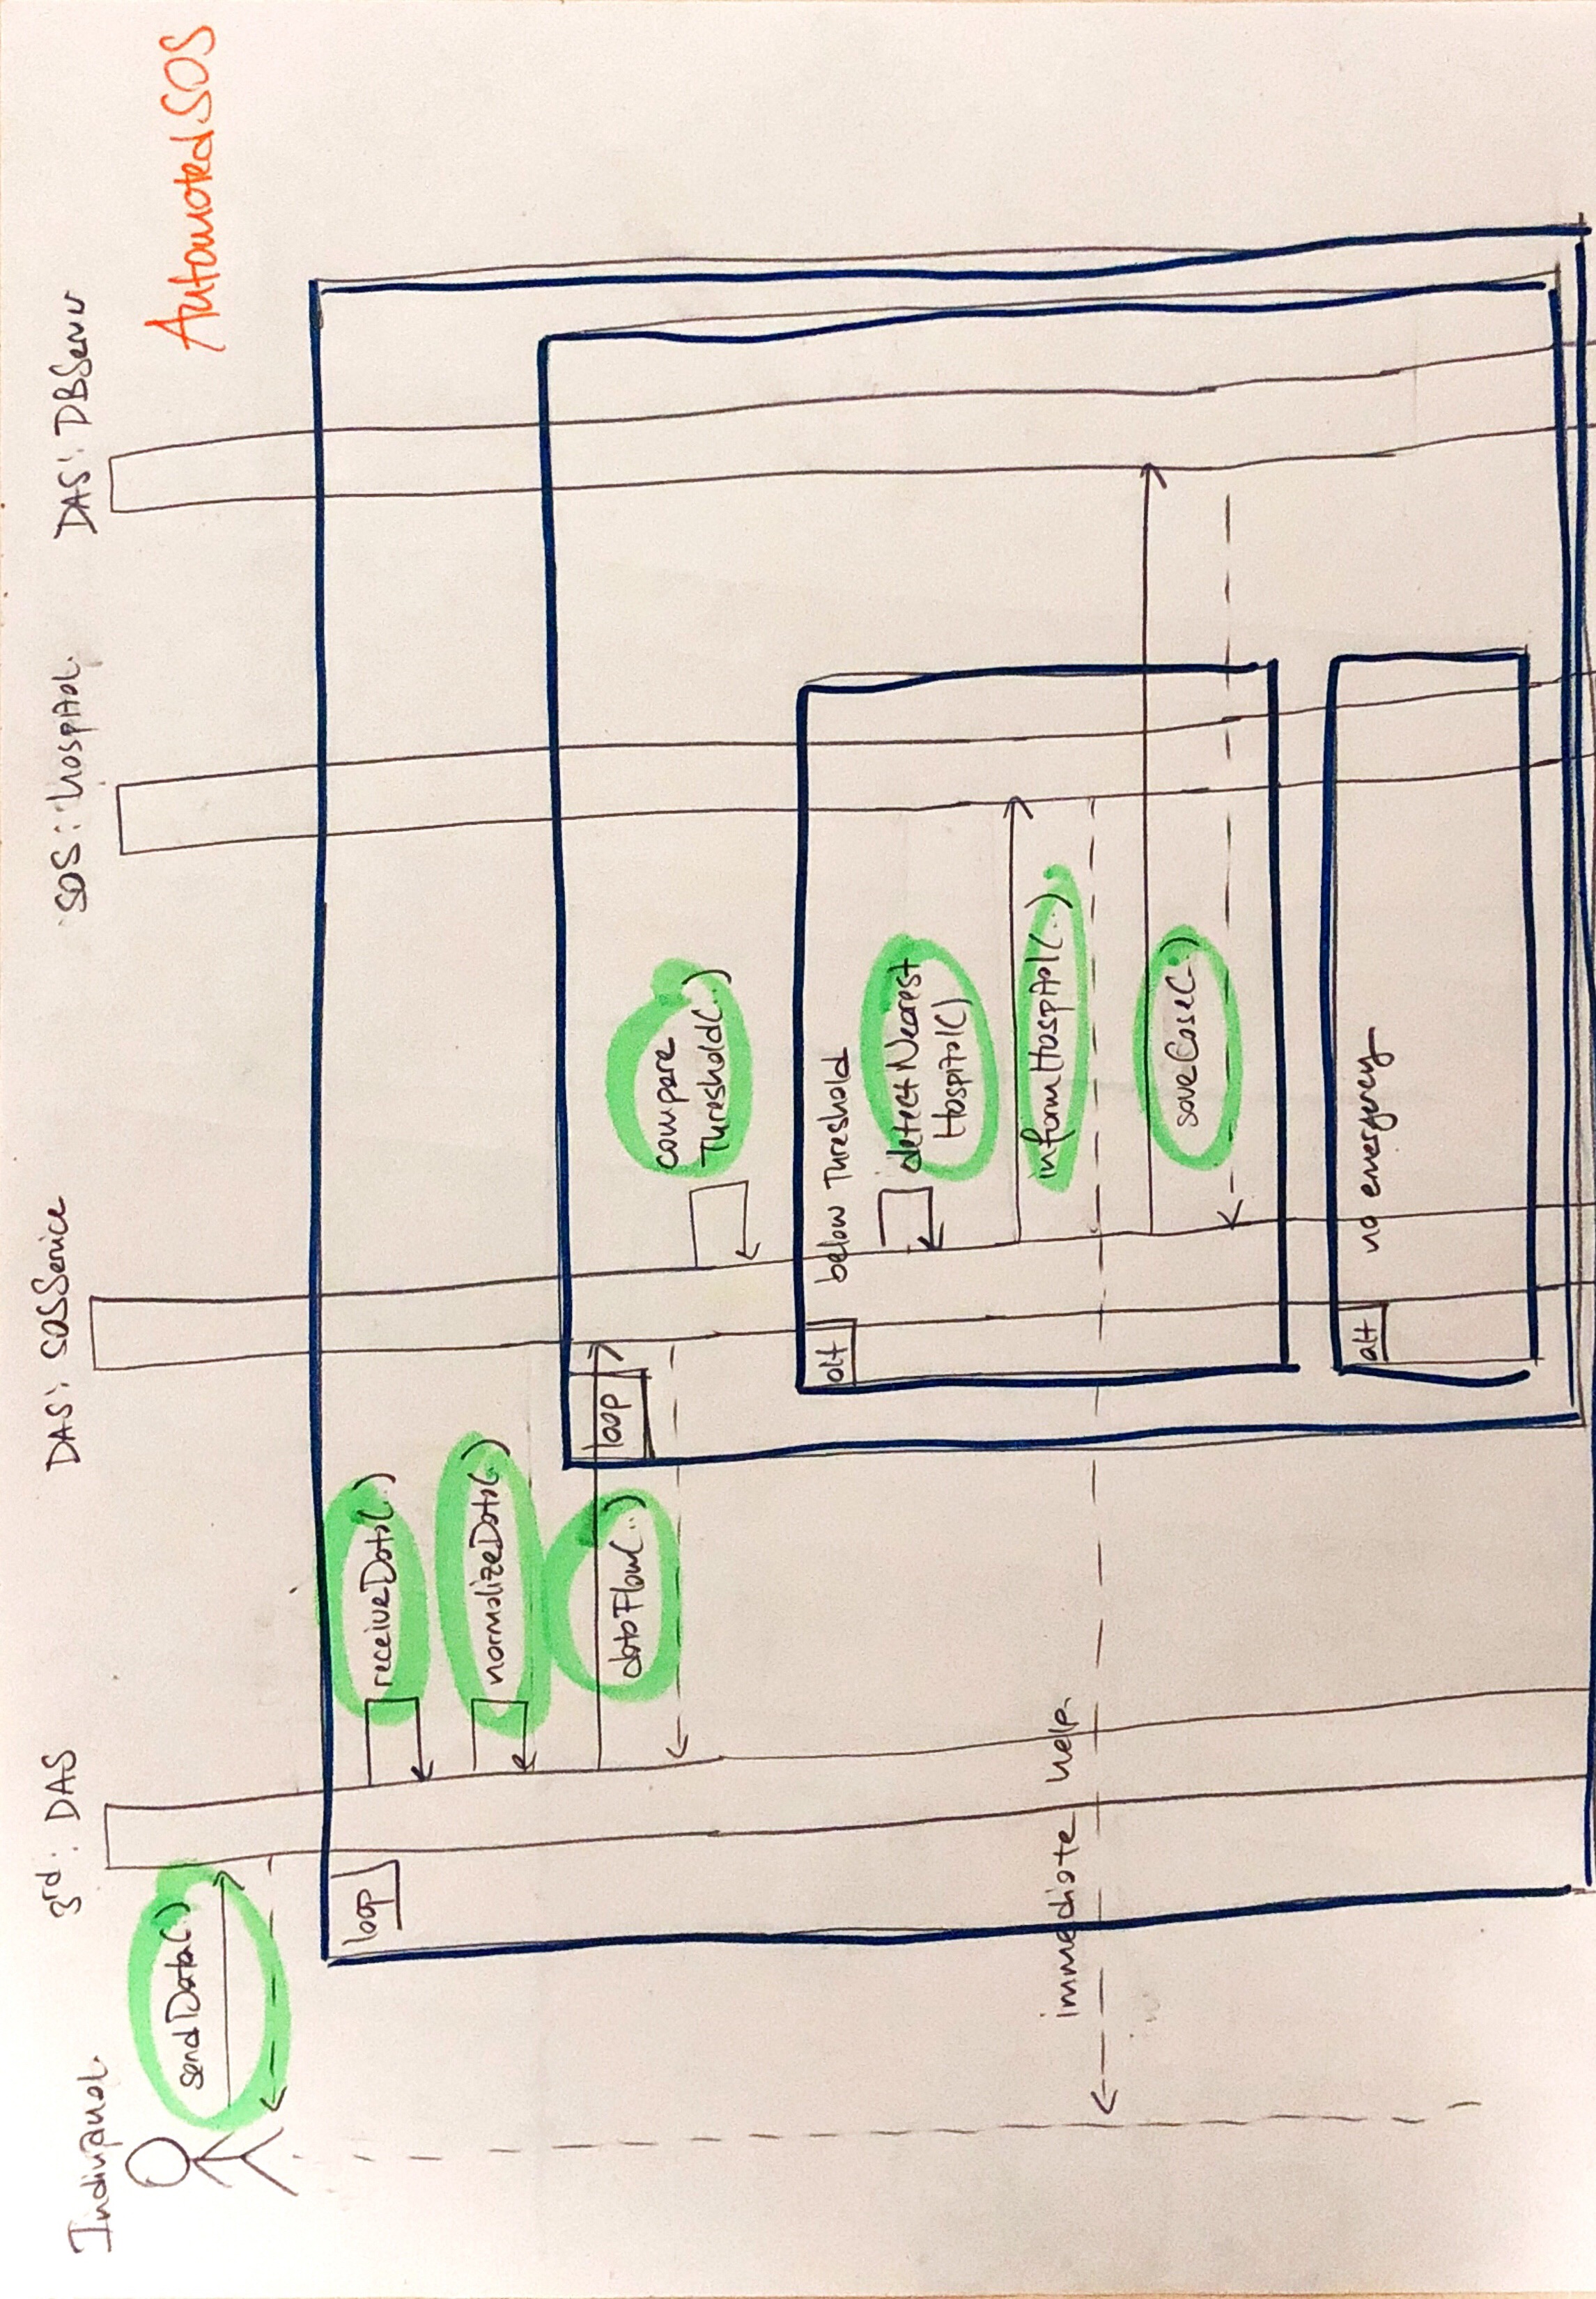 AutomatedSOS
Individual
3rd : DAS
DAS: SOSService
SOS: hospital
DAS: DBServer
sendData(.)
loop
receiveData(..)
normalizeData(..)
dataFlow(...)
loop
compare
Threshold(..)
alt
below Threshold
detectNearest
Hospital()
informHospital(..)
immediate help
saveCase(..)
alt
no emergency